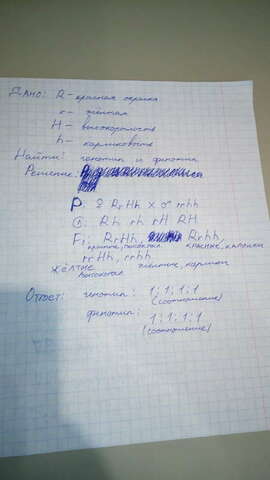 Дано: R - красная окраска
r - жёлтая
H - высокорослость
h - карликовость
Найти: генотип и фенотип
Решение:
P: ♀ RrHh × ♂ rrhh
G: Rh rh rH RH
F₁: RrHh, Rrhh,
красные, высокие красные, карлики
rrHh, rrhh
жёлтые высокие жёлтые, карлики
Ответ: генотип: 1:1:1:1
(соотношение)
фенотип: 1:1:1:1
(соотношение)